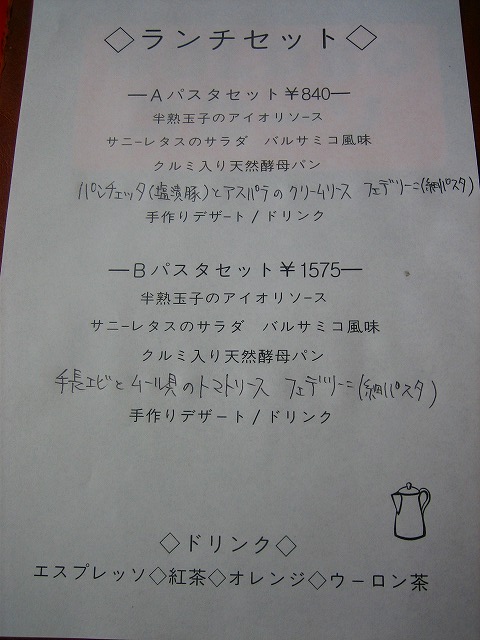 ◇ランチセット◇
―Aパスタセット￥840―
半熟玉子のアイオリソース
サニーレタスのサラダ　バルサミコ風味
クルミ入り天然酵母パン
パンチェッタ(塩漬豚)とアスパラのクリームソース　フェデリーニ(細パスタ)
手作りデザート/ドリンク
―Bパスタセット￥1575―
半熟玉子のアイオリソース
サニーレタスのサラダ　バルサミコ風味
クルミ入り天然酵母パン
手長エビとムール貝のトマトソース　フェデリーニ(細パスタ)
手作りデザート/ドリンク
◇ドリンク◇
エスプレッソ◇紅茶◇オレンジ◇ウーロン茶